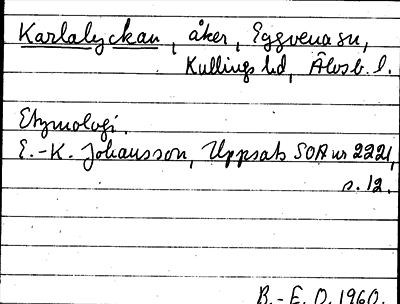 Karlalyckan, åker, Eggvena sn,
Kullings hd, Älvsb. l.
Etymologi.
E.-K. Johansson, Uppsats SOA nr 2221,
s. 12.
B.-E. O. 1960.